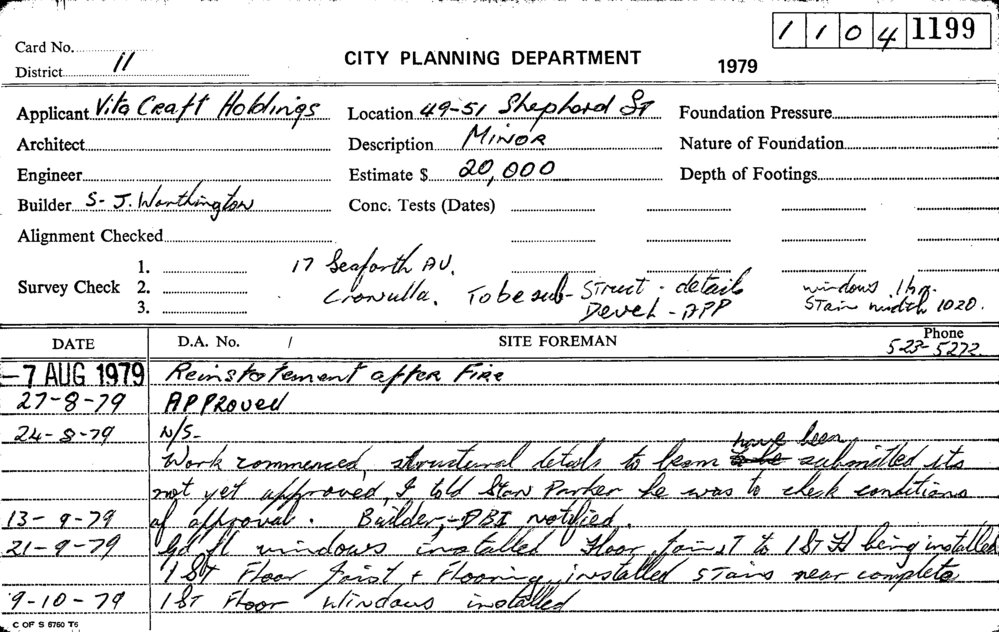 1 1 0 4 1199
Card No.
District 11
CITY PLANNING DEPARTMENT
1979
Applicant Vita Craft Holdings Location 49-51 Shephard St Foundation Pressure
Architect Description MINOR Nature of Foundation
Engineer Estimate $ 20,000 Depth of Footings
Builder S- J. Worthington Conc. Tests (Dates)
Alignment Checked
Survey Check
1. 17 Seaforth AV.
2. Cronulla. To be sub- Struct - details windows 1 hr.
3. Devel - APP Stair width 1020.
DATE D.A. No. / SITE FOREMAN Phone 523-5272
-7 AUG 1979 Reinstatement after Fire
27-8-79 APPROVED
24-8-79 N/S-
have been
Work commenced, structural details to beam submitted its
not yet approved, I told Stan Parker he was to check conditions
13-9-79 of approval. Builder, -DBI notified.
21-9-79 Gd fl windows installed Floor joist to 1st Fl being installed
1st Floor Joist + Flooring installed stairs near complete
9-10-79 1st Floor Windows installed
C OF S 6760 T6